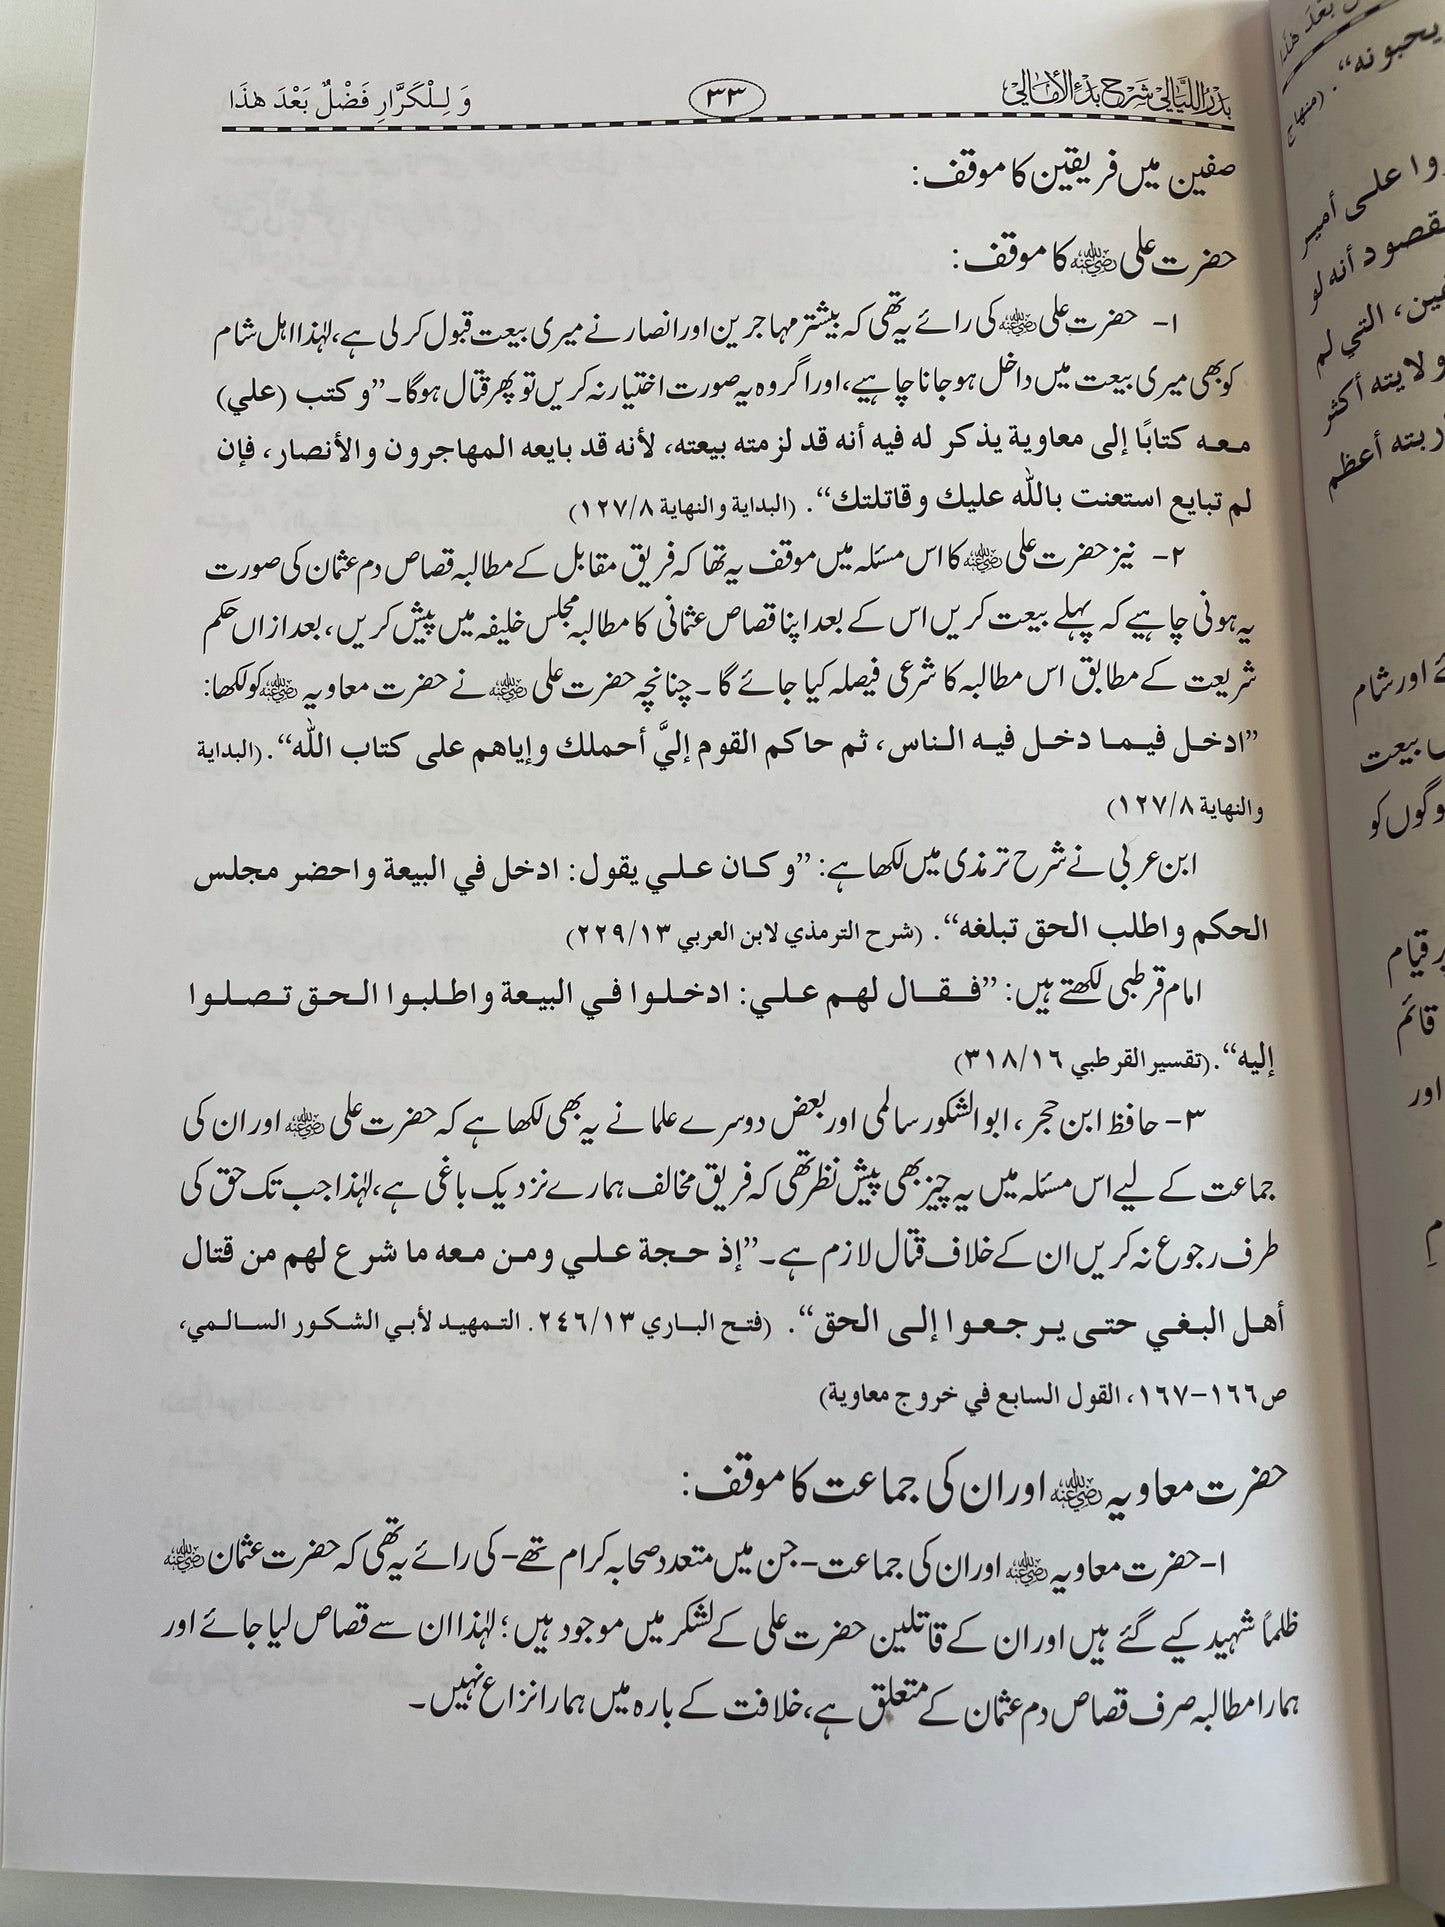 بدر الليالي شرح بدء الأمالي
٣٣
وَ لِلْكَرَّارِ فَضْلٌ بَعْدَ هٰذَا
صفین میں فریقین کا موقف:
حضرت علی ﷺ کا موقف:
١- حضرت علی رضي الله عنه کی رائے یہ تھی کہ بیشتر مہاجرین اور انصار نے میری بیعت قبول کر لی ہے، لہٰذا اہل شام
کو بھی میری بیعت میں داخل ہو جانا چاہیے، اور اگر وہ یہ صورت اختیار نہ کریں تو پھر قتال ہوگا۔ ”وكتب (علي)
معه كتابًا إلى معاوية يذكر له فيه أنه قد لزمته بيعته، لأنه قد بايعه المهاجرون والأنصار، فإن
لم تبايع استعنت بالله عليك وقاتلتك“. (البداية والنهاية ١٢٧/٨)
٢- نیز حضرت علی رضي الله عنه کا اس مسئلہ میں موقف یہ تھا کہ فریق مقابل کے مطالبہ قصاص دم عثمان کی صورت
یہ ہونی چاہیے کہ پہلے بیعت کریں اس کے بعد اپنا قصاص عثمانی کا مطالبہ مجلس خلیفہ میں پیش کریں، بعد ازاں حکم
شریعت کے مطابق اس مطالبہ کا شرعی فیصلہ کیا جائے گا۔ چنانچہ حضرت علی رضي الله عنه نے حضرت معاویہ رضي الله عنه کو لکھا:
”ادخل فيما دخل فيه الناس، ثم حاكم القوم إليَّ أحملك وإياهم على كتاب الله“. (البداية
والنهاية ١٢٧/٨)
ابن عربی نے شرح ترمذی میں لکھا ہے: ”وكان علي يقول: ادخل في البيعة واحضر مجلس
الحكم واطلب الحق تبلغه“. (شرح الترمذي لابن العربي ٢٢٩/١٣)
امام قرطبی لکھتے ہیں: ”فقال لهم علي: ادخلوا في البيعة واطلبوا الحق تصلوا
إليه“. (تفسير القرطبي ٣١٨/١٦)
٣- حافظ ابن حجر، ابو الشکور سالمی اور بعض دوسرے علما نے یہ بھی لکھا ہے کہ حضرت علی رضي الله عنه اور ان کی
جماعت کے لیے اس مسئلہ میں یہ چیز بھی پیش نظر تھی کہ فریق مخالف ہمارے نزدیک باغی ہے، لہٰذا جب تک حق کی
طرف رجوع نہ کریں ان کے خلاف قتال لازم ہے۔ ”إذ حجة علي ومن معه ما شرع لهم من قتال
أهل البغي حتى يرجعوا إلى الحق“. (فتح الباري ٢٤٦/١٣. التمهيد لأبي الشكور السالمي،
ص١٦٦-١٦٧، القول السابع في خروج معاوية)
حضرت معاویہ رضي الله عنه اور ان کی جماعت کا موقف:
١- حضرت معاویہ رضي الله عنه اور ان کی جماعت - جن میں متعدد صحابہ کرام تھے - کی رائے یہ تھی کہ حضرت عثمان رضي الله عنه
ظلماً شہید کیے گئے ہیں اور ان کے قاتلین حضرت علی کے لشکر میں موجود ہیں؛ لہٰذا ان سے قصاص لیا جائے اور
ہمارا مطالبہ صرف قصاص دم عثمان کے متعلق ہے، خلافت کے بارہ میں ہمارا نزاع نہیں۔
يحبونه“. (منهاج
على أمير
أنه لو
التي لم
ولايته أكثر
أعظم
اور شام
بیعت
قیام
قائم
اور